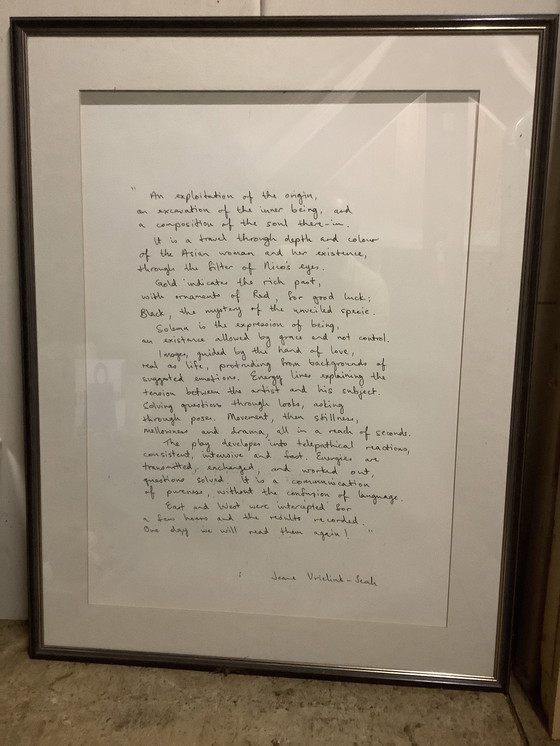 " An exploitation of the origin,
an excavation of the inner being, and
a composition of the soul there-in.
It is a travel through depth and colour
of the Asian woman and her existence,
through the filter of Nico's eyes.
Gold indicates the rich past,
with ornaments of Red, for good luck;
Black, the mystery of the unveiled specie.
Solemn is the expression of being,
an existance allowed by grace and not control.
Images, guided by the hand of love,
real as life, protruding from backgrounds of
suggested emotions. Energy lines explaining the
tension between the artist and his subject.
Solving questions through looks, asking
through poses. Movement, then stillness,
mellowness and drama, all in a reach of seconds.
The play developes into telepathical reactions,
consistent, intensive and fast. Energies are
transmitted, exchanged, and worked out,
questions solved. It is a communication
of pureness, without the confusion of language.
East and West were intercepted for
a few hours and the results recorded.
One day we will read them again! "
Vrielink - Seah